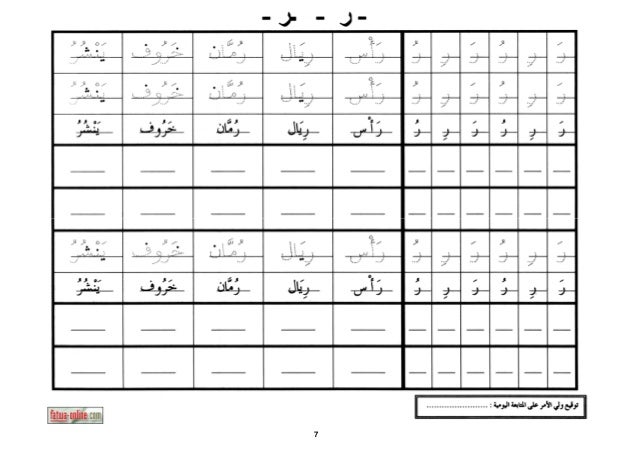 - ر - ـر -
رَ رِ رُ رَ رِ رُ رَأْس رِيَال رُمَّان خَرُوف يَنْشُرُ
رَ رِ رُ رَ رِ رُ رَأْس رِيَال رُمَّان خَرُوف يَنْشُرُ
رَ رِ رُ رَ رِ رُ رَأْس رِيَال رُمَّان خَرُوف يَنْشُرُ
رَ رِ رُ رَ رِ رُ رَأْس رِيَال رُمَّان خَرُوف يَنْشُرُ
رَ رِ رُ رَ رِ رُ رَأْس رِيَال رُمَّان خَرُوف يَنْشُرُ
توقيع ولي الأمر على المتابعة اليومية : ........................
fatwa-online.com
7